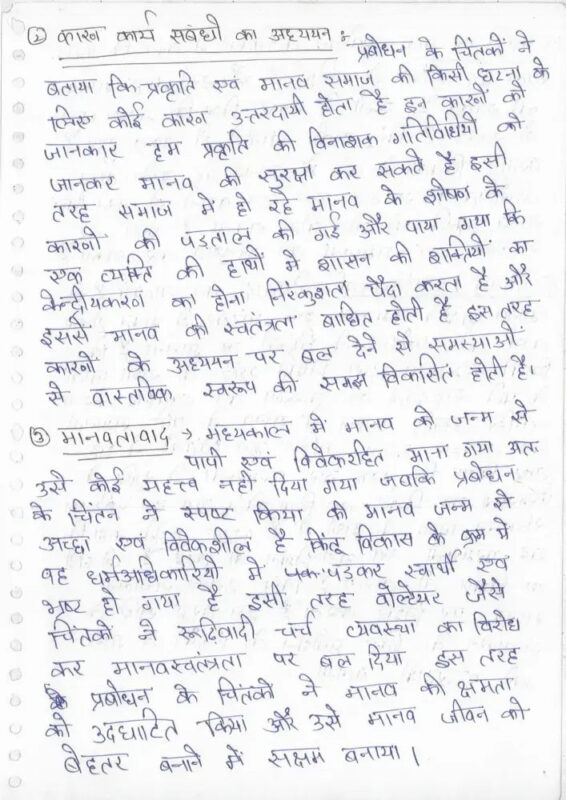 ② कारण कार्य संबंधों का अध्ययन :- प्रबोधन के चिंतकों ने
बताया कि प्रकृति एवं मानव समाज की किसी घटना के
लिए कोई कारण उत्तरदायी होता है इन कारणों को
जानकार हम प्रकृति की विनाशक गतिविधियों को
जानकर मानव की सुरक्षा कर सकते हैं इसी
तरह समाज में हो रहे मानव के शोषण के
कारणों की पड़ताल की गई और पाया गया कि
एक व्यक्ति की हाथों में शासन की शक्तियों का
केन्द्रीयकरण का होना निरंकुशता पैदा करता है और
इससे मानव की स्वतंत्रता बाधित होती है इस तरह
कारणों के अध्ययन पर बल देने से समस्याओं
से वास्तविक स्वरूप की समझ विकसित होती है।
③ मानवतावाद → मध्यकाल में मानव को जन्म से
पापी एवं विवेकरहित माना गया अतः
उसे कोई महत्त्व नहीं दिया गया जबकि प्रबोधन
के चिंतन ने स्पष्ट किया की मानव जन्म से
अच्छा एवं विवेकशील है किंतु विकास के क्रम में
वह धर्मअधिकारियों में पड़कर स्वार्थी एवं
भ्रष्ट हो गया है इसी तरह वॉल्टेयर जैसे
चिंतकों ने रूढिवादी चर्च व्यवस्था का विरोध
कर मानवस्वतंत्रता पर बल दिया इस तरह
प्रबोधन के चिंतकों ने मानव की क्षमता
को उदघाटित किया और उसे मानव जीवन को
बेहतर बनाने में सक्षम बनाया।